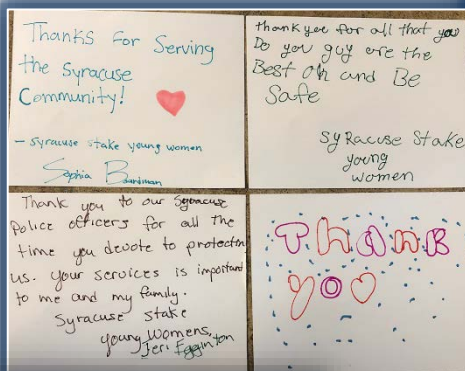 Thanks For Serving
the Syracuse
Community!
- Syracuse stake young women
Sophia Boardman
Thank you for all that you
Do you guy are the
Best Oh and Be
Safe
Syracuse Stake
young
women
Thank you to our Syracuse
Police officers for all the
time you devote to protectin
us. Your services is important
to me and my family.
Syracuse stake
Young Womens,
Jeri Egginton
Thank
you